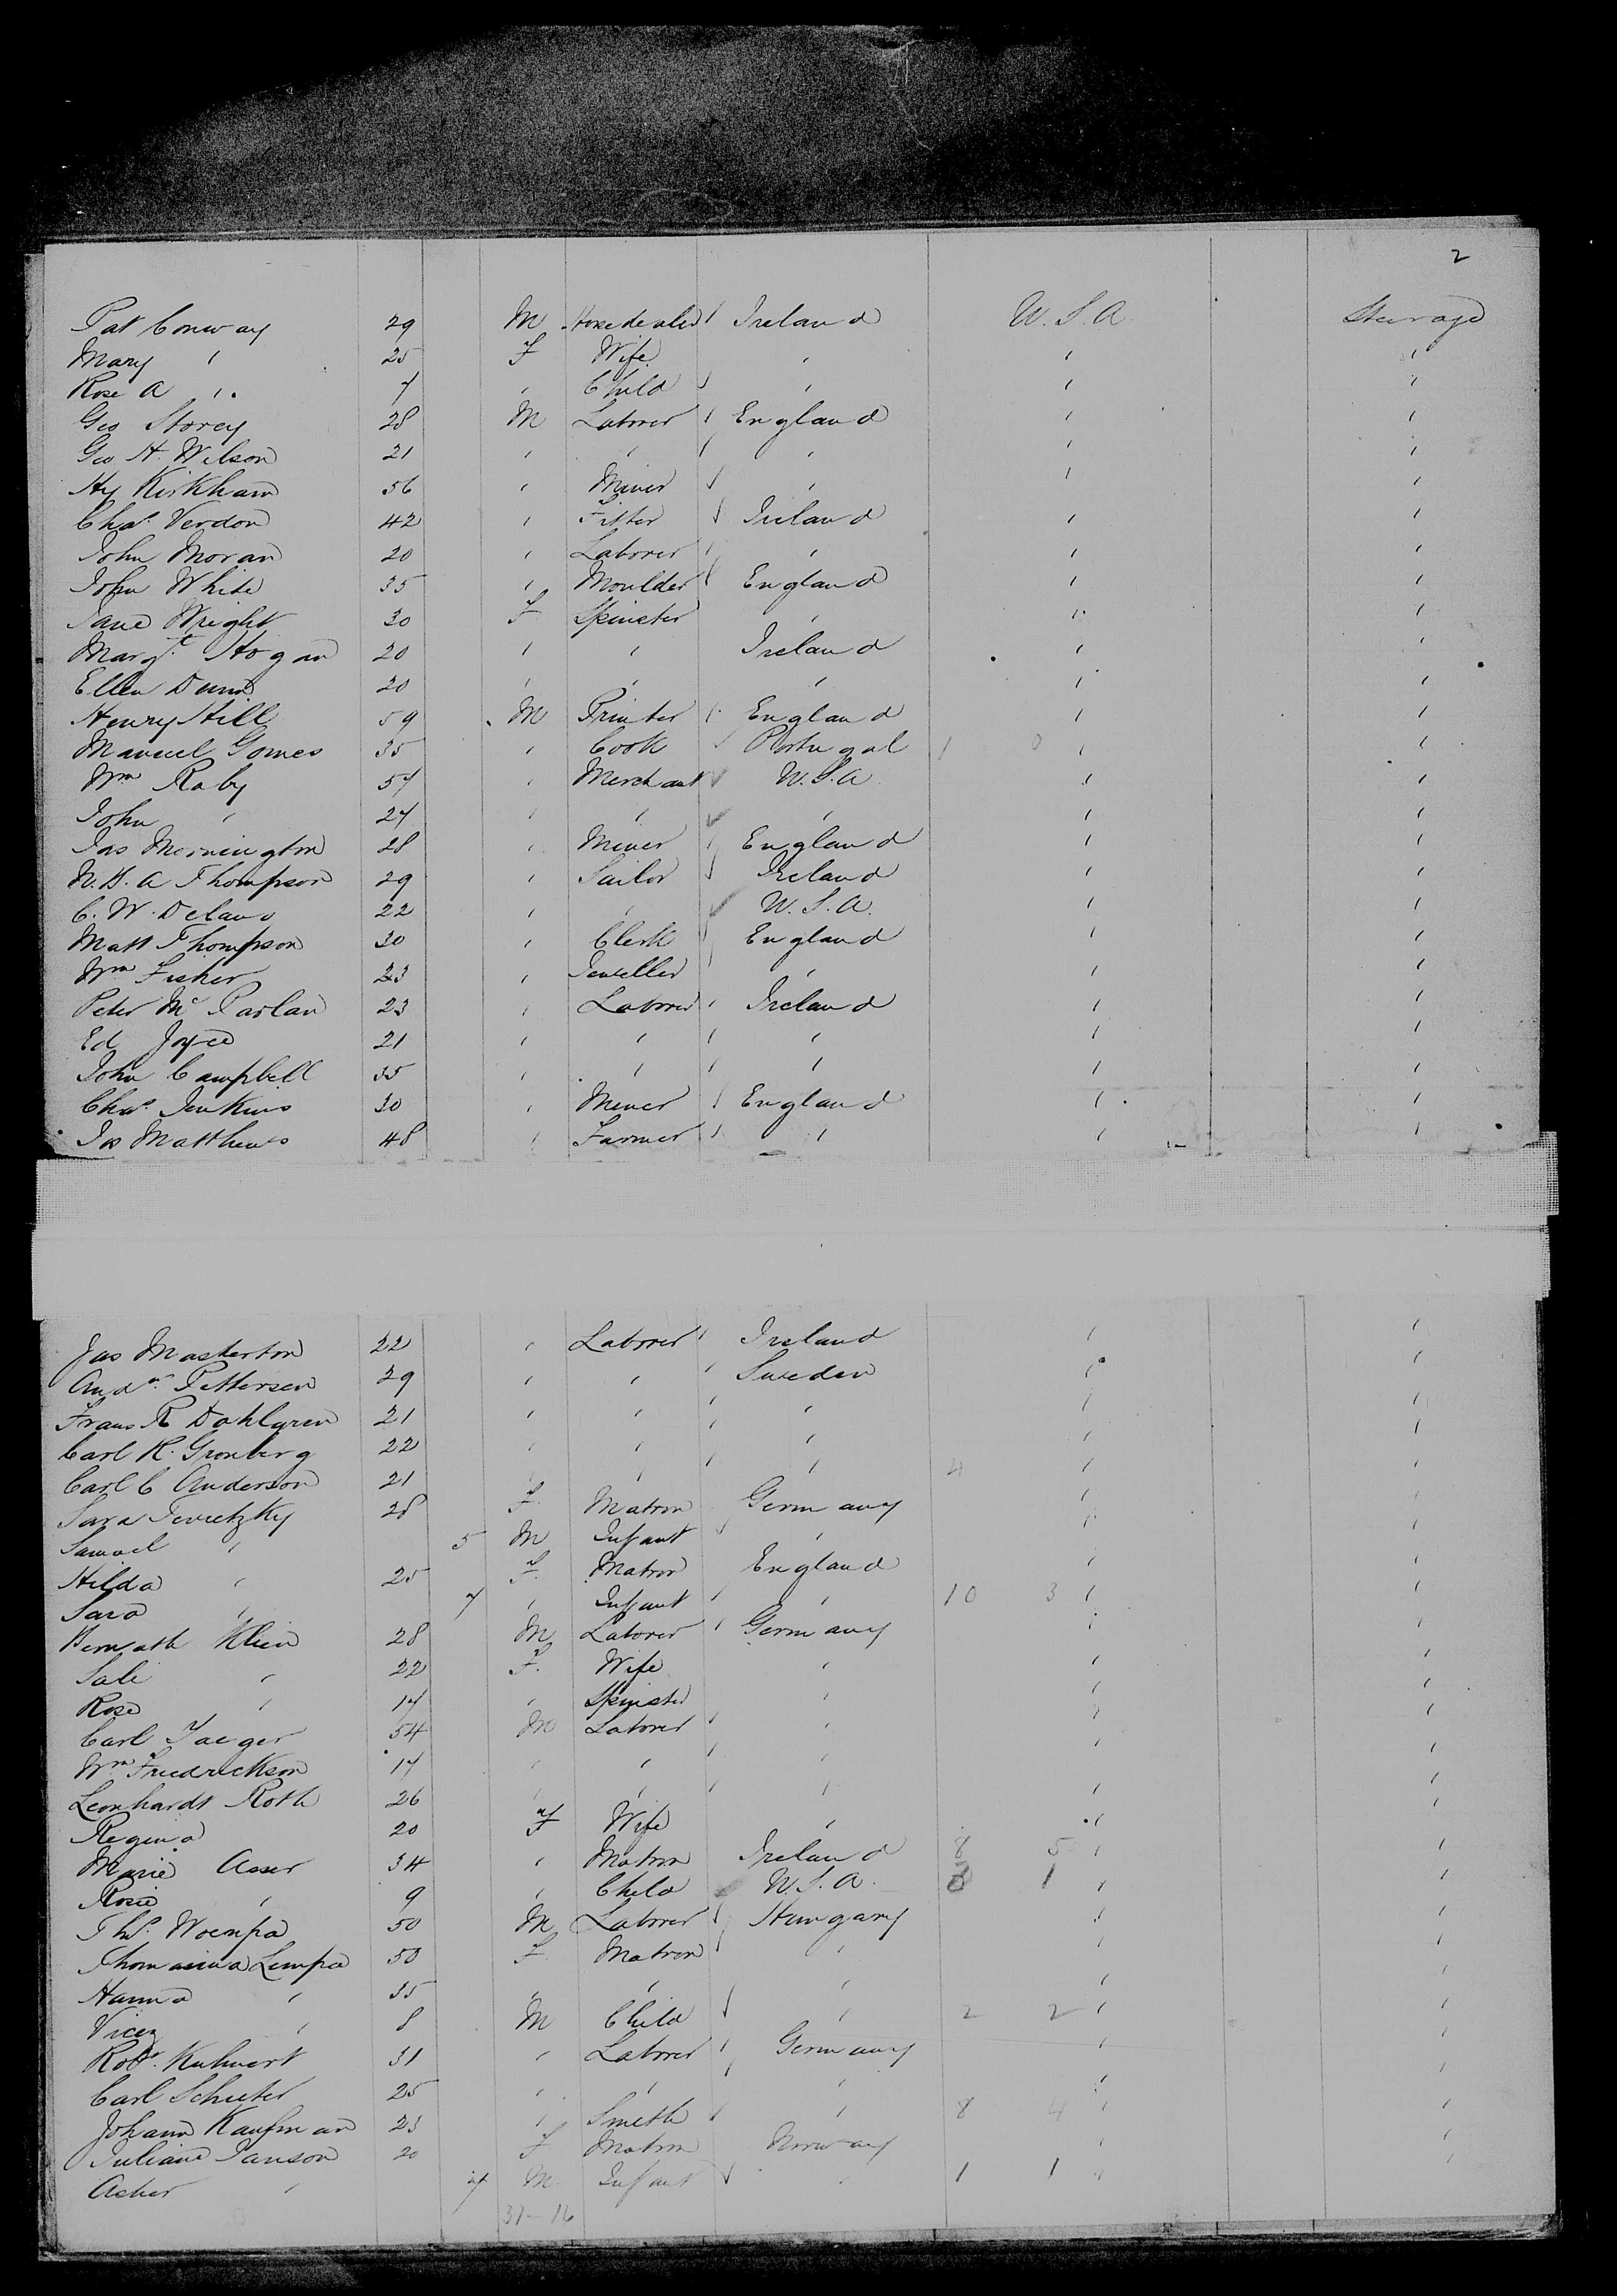 2
Pat Conway 29 M Horsedealer Ireland U.S.A. Steerage
Mary " 25 F Wife " " "
Rose A " 7 " Child " " "
Geo Storey 28 M Laborer England " "
Geo. H. Wilson 21 " " " " "
Hy Kirkham 56 " Miner " " "
Chas. Verdon 42 " Fitter Ireland " "
John Moran 20 " Laborer " " "
John White 35 " Moulder England " "
Jane Wright 30 F Spinster " " "
Margt. Hogan 20 " " Ireland " "
Ellen Dunn 20 " " " " "
Henry Hill 59 M Printer England " "
Manuel Gomes 35 " Cook Portugal 1 0 " "
Wm Raby 57 " Merchant U.S.A. " "
John " 27 " " " " "
Jas Mornington 28 " Miner England " "
29 " Sailor Ireland " "
C. W. Delano 22 " " U.S.A. " "
Matt Thompson 30 " Clerk England " "
Wm Fisher 23 " Jeweller " " "
Peter Mc Parlan 23 " Laborer Ireland " "
Ed Joyce 21 " " " " "
John Campbell 35 " " " " "
Chas. Jenkins 30 " Miner England " "
Jas Matthews 48 " Farmer " " "
Jas Masterton 22 " Laborer Ireland " "
Andw. Pettersen 29 " " Sweden " "
Frans R Dahlgren 21 " " " " "
Carl R. Gronberg 22 " " " " "
Carl C Anderson 21 " " " 4 " "
Sara 28 F. Matron Germany " "
Samuel " 5 M Infant " " "
Hilda " 25 F. Matron England " "
Sara " 7 " Infant " 10 3 " "
Klein 28 M Laborer Germany " "
Sali " 22 F. Wife " " "
Rosa " 17 " Spinster " " "
Carl Jaeger 54 M Laborer " " "
Wm Friedrickson 17 " " " " "
Leonhardt Roth 26 " " " " "
Regina 20 F Wife " " "
Marie Asser 34 " Matron Ireland 8 5 " "
Rosie " 9 " Child U.S.A. 1 " "
Ths. Woempa 50 M Laborer Hungary " "
Lempa 50 F Matron " " "
Hanna " 35 " " " " "
" 8 M Child " 2 2 " "
Robt. Kuhnert 31 " Laborer Germany " "
Carl Schieter 25 " " " " "
Johann Kaufman 23 " Smith " 8 4 " "
Juliane Janson 20 F Matron Norway " "
Asher " 7 M. Infant " 1 1 "
37 - 16